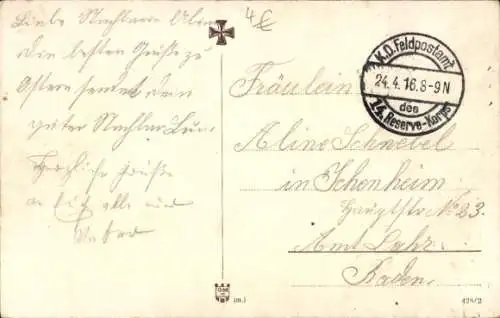 Liebe Nachbarin Aline
Die besten Grüße zu
Ostern sendet dein
guter Nachbar
Herzliche Grüße
an Euch alle
4 €
Fräulein
Aline Schnebel
in Ichenheim
Hauptstr No 23.
Amt Lahr
Baden.
K.D. Feldpostamt
24.4.16. 8-9 N
des
14. Reserve-Korps
(m.)
428/2